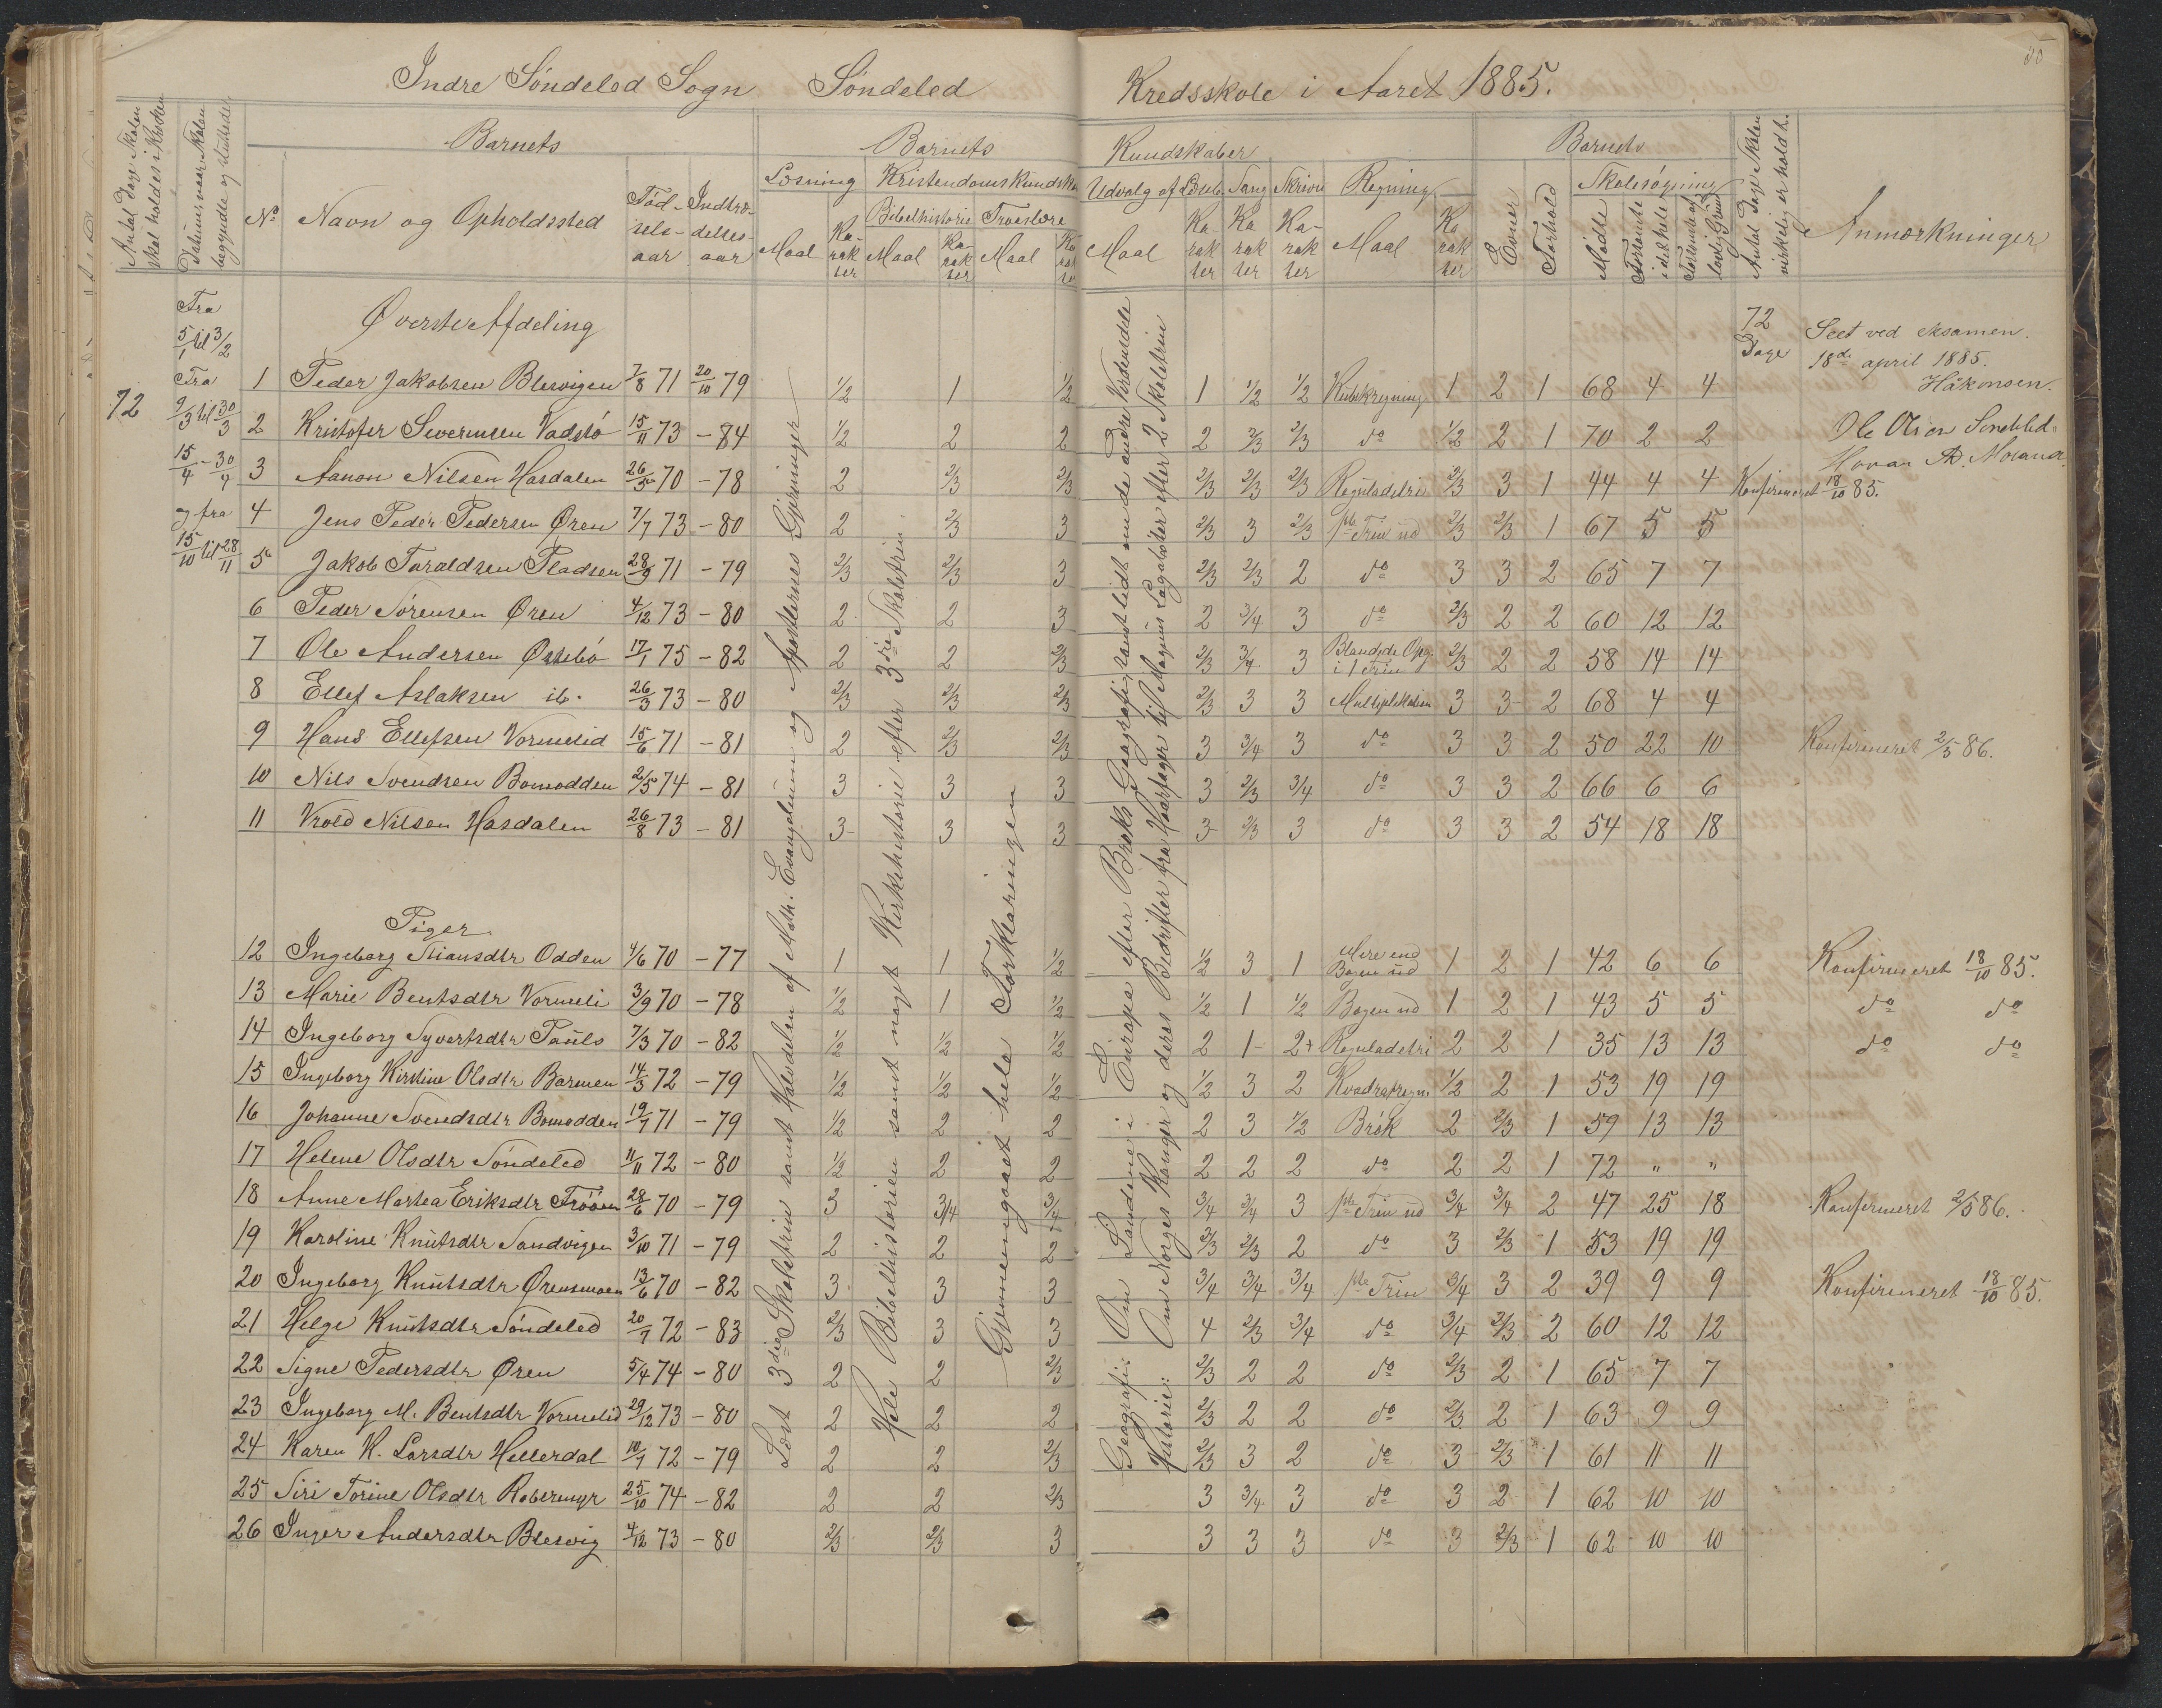 Indre Søndeled Sogn Søndeled Kredsskole i Aaret 1885.
Antal Dage Skolen skal holdes i Kredsen
Datum naar Skolen begyndte og sluttedes
Barnets
No Navn og Opholdssted Fødselsaar Indtrædelsesaar
Barnets Kundskaber
Læsning Kristendomskundskab Udvalg af Læseb. Sang Skrivn Regning
Bibelhistorie Troeslære
Maal Karakter Maal Karakter Maal Karakter Maal Karakter Karakter Karakter Maal Karakter
Barnets
Evner Forhold Skolesøgning
Mødte Forsømte i det hele Forsømte af lovlig Grund
Antal Dage Skolen virkelig er holdt
Anmærkninger
72
Fra 5/1 til 3/2
Fra 9/3 til 30/3
15/4 - 30/4
og fra 15/10 til 28/11
Øverste Afdeling
72 Dage
Seet ved eksamen.
18de april 1885.
Håkonsen.
1 Peder Jakobsen Blesvigen 7/8 71 20/10 79 1/2 1 1/2 1 1/2 1/2 Kubikregning 1 2 1 68 4 4
2 Kristofer Severinsen Vadstø 15/11 73 - 84 1/2 2 2 2 2/3 2/3 do 1/2 2 1 70 2 2
3 Aanon Nilsen Hasdalen 26/5 70 - 78 2 2/3 2/3 2/3 2/3 2/3 Reguladetri 2/3 3 1 44 4 4 Konfirmeret 18/10 85.
4 Jens Peder Pedersen Øren 7/7 73 - 80 2 2/3 3 2/3 3 2/3 1ste Trin ud 2/3 2/3 1 67 5 5
5 Jakob Taraldsen Pladsen 28/9 71 - 79 2/3 2/3 3 2/3 2/3 2 do 3 3 2 65 7 7
6 Peder Sørensen Øren 4/12 73 - 80 2 2 3 2 3/4 3 do 2/3 2 2 60 12 12
7 Ole Andersen Østebø 17/1 75 - 82 2 2 2/3 2/3 3/4 3 Blandede Opg. i 1 Trin 2/3 2 2 58 14 14
8 Ellef Aslaksen ib. 26/3 73 - 80 2/3 2/3 2/3 2/3 3 3 Multiplikation 3 3 2 68 4 4
9 Hans Ellefsen Vormelid 15/6 71 - 81 2 2/3 2/3 3 3/4 3 do 3 3 2 50 22 10 Konfirmeret 2/5 86.
10 Nils Svendsen Bomodden 2/5 74 - 81 3 3 3 3 2/3 3/4 do 3 3 2 66 6 6
11 Vrold Nilsen Hasdalen 26/8 73 - 81 3 3 3 3 2/3 3 do 3 3 2 54 18 18
Piger
12 Ingeborg Stiansdtr Odden 4/6 70 - 77 1 1 1/2 1/2 3 1 Mere end Bogen ud 1 2 1 42 6 6 Konfirmeret 18/10 85.
13 Marie Bentsdtr Vormeli 3/9 70 - 78 1/2 1 1/2 1/2 1 1/2 Bogen ud 1 2 1 43 5 5 do do
14 Ingeborg Syvertsdtr Pauls 7/3 70 - 82 1/2 1/2 1/2 2 1 2+ Reguladetri 2 2 1 35 13 13 do do
15 Ingeborg Kirstine Olsdtr Barmen 14/3 72 - 79 1/2 1/2 1/2 1/2 3 2 Kvadratregni 1/2 2 1 53 19 19
16 Johanne Svendsdtr Bomodden 19/7 71 - 79 1/2 2 2 2 3 1/2 Brøk 2 2/3 1 59 13 13
17 Helene Olsdtr Søndeled 11/11 72 - 80 1/2 2 2 2 2 2 do 2 2 1 72 " "
18 Anne Martea Eriksdtr Frøøen 28/6 70 - 79 3 3/4 3/4 3/4 3/4 3 1ste Trin ud 3/4 3/4 2 47 25 18 Konfirmeret 2/5 86.
19 Karoline Knutsdtr Sandvigen 3/10 71 - 79 2 2 2 2/3 2/3 2 do 3 2/3 1 53 19 19
20 Ingeborg Knutsdtr Ørensmoen 13/6 70 - 82 3 3 3 3/4 3/4 3/4 1ste Trin 3/4 3 2 39 9 9 Konfirmeret 18/10 85.
21 Helge Knutsdtr Søndeled 20/7 72 - 83 2/3 3 3 4 2/3 3/4 do 3/4 2/3 2 60 12 12
22 Signe Pedersdtr Øren 5/4 74 - 80 2 2 2/3 2/3 2 2 do 2/3 2 1 65 7 7
23 Ingeborg M. Bentsdtr Vormelid 29/12 73 - 80 2 2 2 2/3 2 2 do 2/3 2 1 63 9 9
24 Karen K. Larsdtr Hellerdal 10/7 72 - 79 2 2 2/3 2/3 3 2 do 3 2/3 1 61 11 11
25 Siri Torine Olsdtr 25/10 74 - 82 2 2 2/3 3 3/4 3 do 3 2 1 62 10 10
26 Inger Andersdtr Blesvig 4/12 73 - 80 2/3 2/3 3 3 3 3 do 3 2/3 1 62 10 10
Læst 3die Skoletrin samt Halvdelen af Math. Evangelium og Apostlernes Gjerninger
Hele Bibelhistorien samt noget Kirkehistorie efter 3die Skoletrin.
Gjennemgaaet hele Forklaringen
Geografi: Om Landene i Europa efter Broks Geografi, samt lidt om de andre Verdensdele
Historie: Om Norges Konger og deres Bedrifter fra Haarfager til Magnus Lagabøter efter 2 Skoletrin